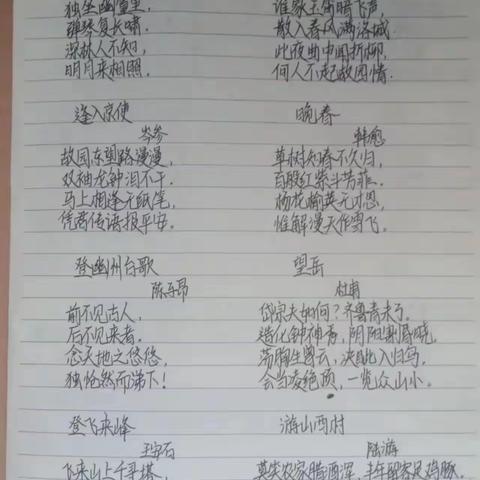 独坐幽篁里,
弹琴复长啸.
深林人不知,
明月来相照.
谁家玉笛暗飞声,
散入春风满洛城.
此夜曲中闻折柳,
何人不起故园情.
逢入京使
岑参
故园东望路漫漫,
双袖龙钟泪不干.
马上相逢无纸笔,
凭君传语报平安.
晚春
韩愈
草树知春不久归,
百般红紫斗芳菲.
杨花榆荚无才思,
惟解漫天作雪飞.
登幽州台歌
陈子昂
前不见古人,
后不见来者.
念天地之悠悠,
独怆然而涕下!
望岳
杜甫
岱宗夫如何?齐鲁青未了.
造化钟神秀,阴阳割昏晓.
荡胸生曾云,决眦入归鸟.
会当凌绝顶,一览众山小.
登飞来峰
王安石
飞来山上千寻塔,
游山西村
陆游
莫笑农家腊酒浑,丰年留客足鸡豚.